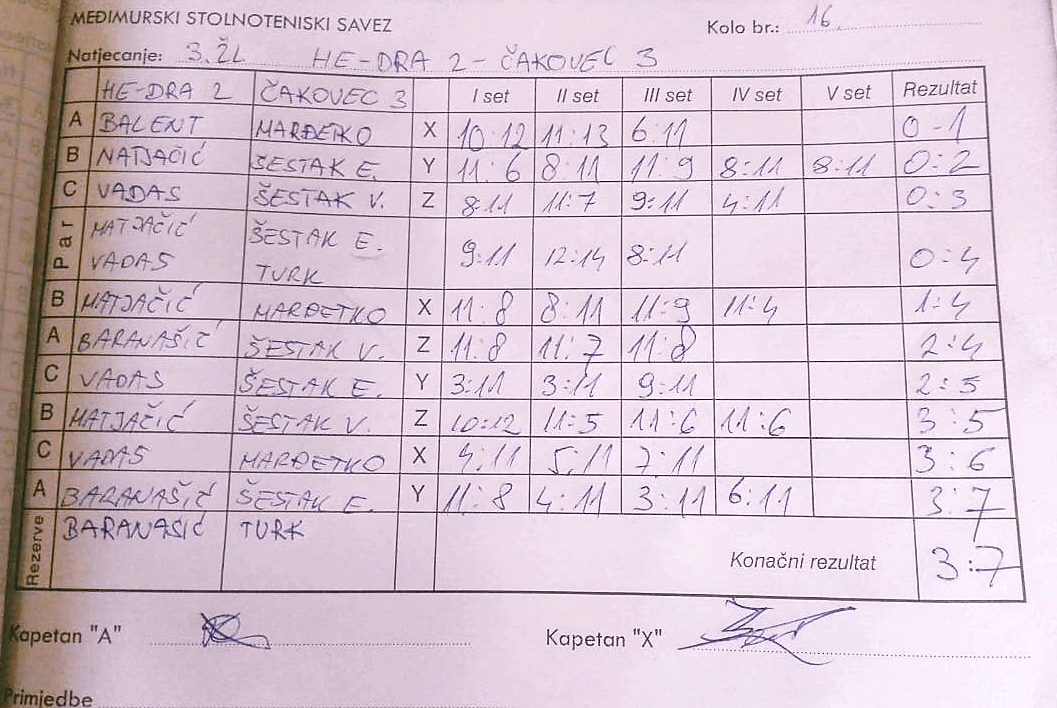 MEĐIMURSKI STOLNOTENISKI SAVEZ
Kolo br.: 16.
Natjecanje: 3.ŽL HE-DRA 2 - ČAKOVEC 3
HE-DRA 2 ČAKOVEC 3 I set II set III set IV set V set Rezultat
A BALENT MARĐETKO X 10:12 11:13 6:11 0-1
B NATJAČIĆ ŠESTAK E. Y 11:6 8:11 11:9 8:11 8:11 0:2
C VADAS ŠESTAK V. Z 8:11 11:7 9:11 4:11 0:3
Par MATJAČIĆ ŠESTAK E. 9:11 12:14 8:11 0:4
VADAS TURK
B MATJAČIĆ MARĐETKO X 11:8 8:11 11:9 11:4 1:4
A BARANAŠIĆ ŠESTAK V. Z 11:8 11:7 11:8 2:4
C VADAS ŠESTAK E. Y 3:11 3:11 9:11 2:5
B MATJAČIĆ ŠESTAK V. Z 10:12 11:5 11:6 11:6 3:5
C VADAS MARĐETKO X 4:11 5:11 7:11 3:6
A BARANAŠIĆ ŠESTAK E. Y 11:8 4:11 3:11 6:11 3:7
Rezerve BARANAŠIĆ TURK
Konačni rezultat 3:7
Kapetan "A" Kapetan "X"
Primjedbe